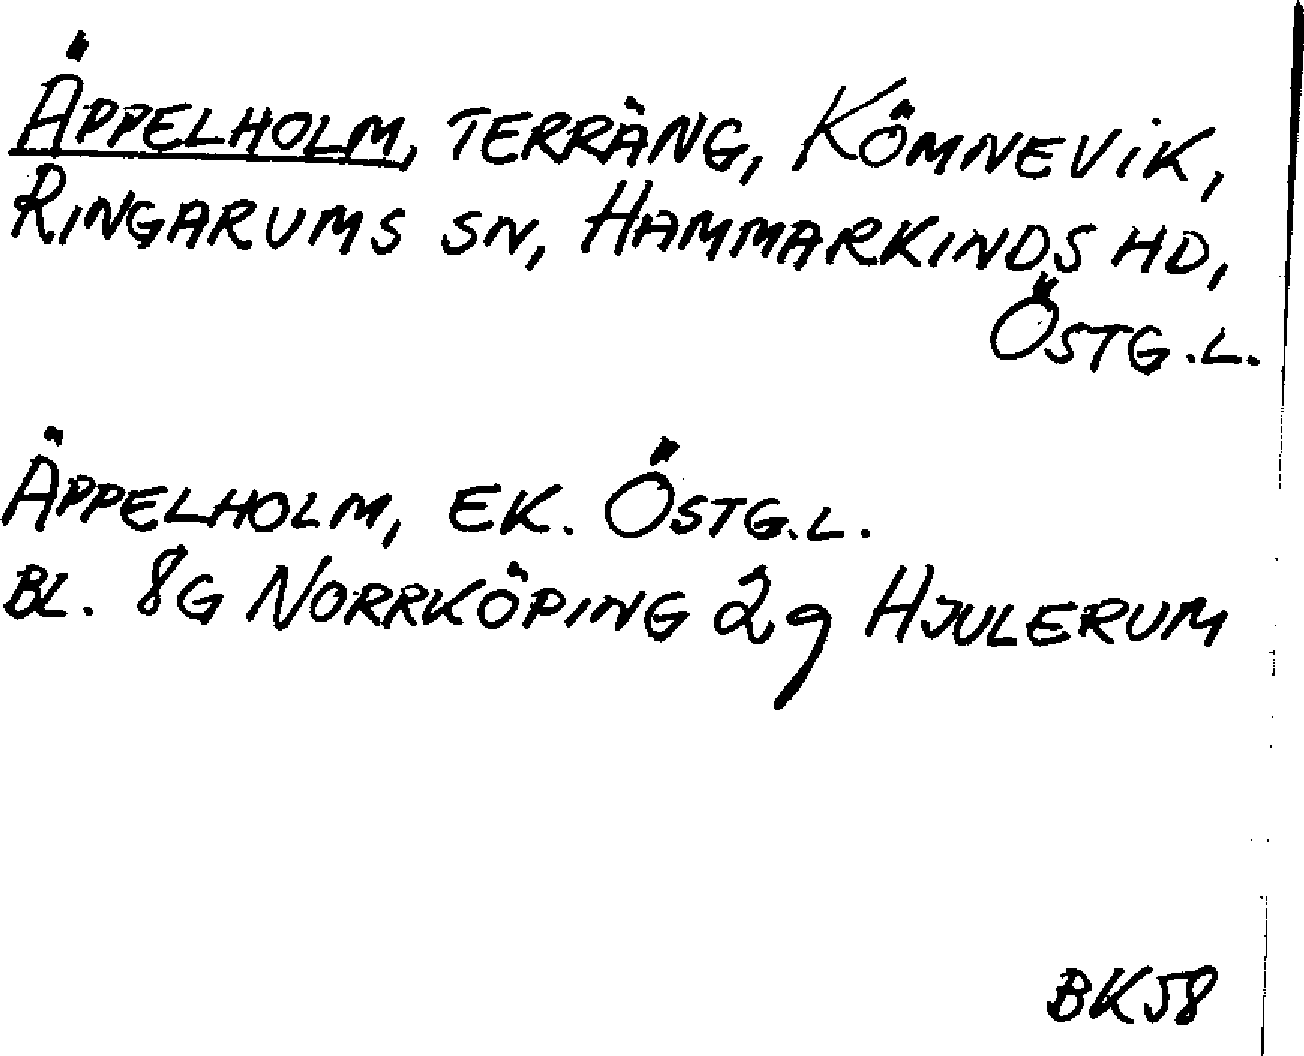 ÄPPELHOLM, TERRÄNG, KÖMNEVIK,
RINGARUMS SN, HAMMARKINDS HD,
ÖSTG.L.
ÄPPELHOLM, EK. ÖSTG.L.
BL. 8G NORRKÖPING 2g HJULERUM
BK58